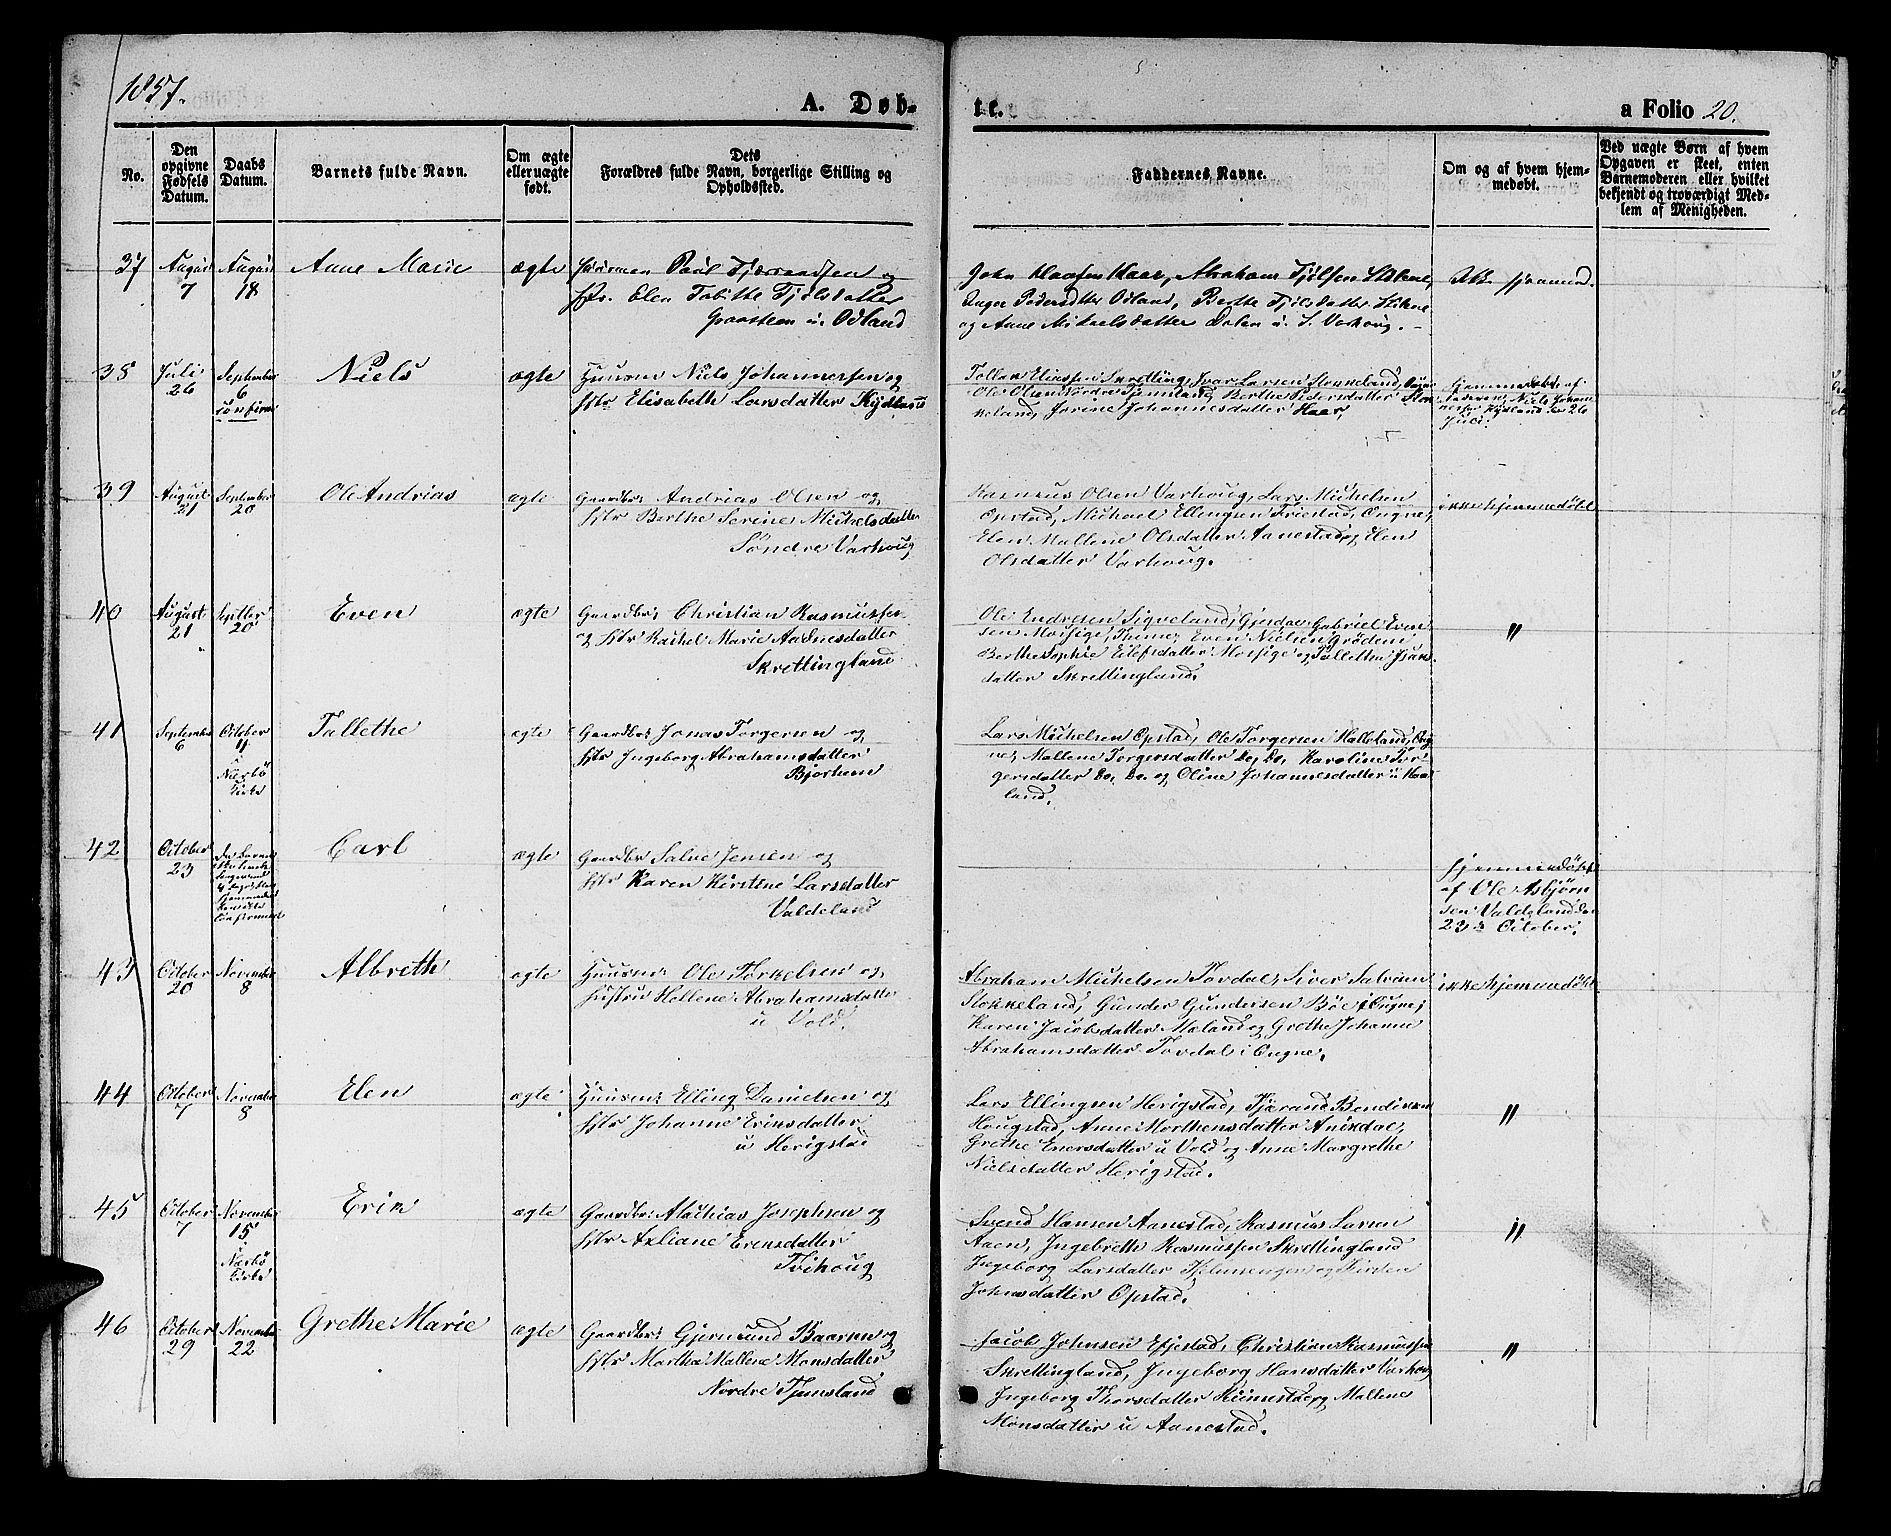 1857.
A. Døb-
te.
a Folio 20.
No.
Den opgivne Fødsels Datum.
Daabs Datum.
Barnets fulde Navn.
Om ægte eller uægte født.
Dets Forældres fulde Navn, borgerlige Stilling og Opholdssted.
Faddernes Navne.
Om og af hvem hjemmedøbt.
Ved uægte Børn af hvem Opgaven er skeet, enten Barnemoderen eller hvilket bekjendt og troværdigt Medlem af Menigheden.
37
August 7
August 18
Anne Marie
ægte
Paul Tjærandsen og
Hstr. Elen Tobitte Tjølsdatter
Graasteen u. Odland
John Haar, Abraham Tjølsen
Pedersdtter Odland, Berthe Tjølsdatter
og Anne Mikaelsdatter Dalen u. S. Varhoug.
38
Juli 26
September 6
confirm
Niels
ægte
Huusm Niels Johannessen og
Hstr Elisabeth Larsdatter Kydland
Eliassen Skretting, Ivar Larsen Stokkeland,
Ole Olsen Nordre Tjemsland, Berthe Pedersdatter Stok-
keland, Jorine Johannesdatter Haar,
hjemmedøbt af
Faderen, Niels Johan-
nessen Kydland den 26
Juli.
39
August 21
September 20
Ole Andrias
ægte
Gaardbr: Andrias Olsen og
Hstr Berthe Serine Michelsdatter
Søndre Varhoug
Rasmus Olsen Varhoug, Lars Michelsen
Opstad, Michael Ellingsen Friestad, Ougne,
Elen Mallene Olsdatter Aanestad og Elen
Olsdatter Varhoug.
ikke hjemmedøbt
40
August 21
Septber 20
Even
ægte
Gaardbr: Christian Rasmussen
og Hstr Rachel Marie Aadnesdatter
Skrettingland
Ole Endresen Sigveland, Gjesdal, Gabriel Even-
sen Mossige, Thime, Even Nielsen Grødem
Berthe Sophie Eilefsdatter Mossige og Tallette
datter Skrettingland.
"
41
September 6
October 11
i
Nærbø
Kirke
Tallethe
ægte
Gaardbr: Jonas Torgersen og
Hstr Ingeborg Abrahamsdatter
Bjorhem
Lars Michelsen Opstad, Ole Torgersen Halleland, Oug-
ne, Mallene Torgersdatter Do, Do, Karoline Tor-
gersdatter Do, Do. og Oline Johannesdatter u Haa-
land.
42
October 23
Carl
ægte
Gaardbr Salve Jensen og
Hstr Karen Kirstine Larsdatter
Valdeland
hjemmedøbt
af Ole Asbjørn
sen Valdeland den
23de October.
43
October 20
November 8
Albreth
ægte
Huusm: Ole Torkelsen og
Hustru Hellene Abrahamsdatter
u Vold.
Abraham Michelsen Tovdal, Siver
Stokkeland, Gunder Gundersen Bøe i Ougne,
Karen Jacobsdatter Maland og Grethe Johanne
Abrahamsdatter Tovdal i Ougne.
ikke hjemmedøbt
44
October 7
November 8
Elen
ægte
Huusm: Elling Danielsen og
Hstr Johanne Eriksdatter
u Herigstad
Lars Ellingsen Herigstad, Tjerand Bendixen
Hougstad, Anne Morthensdatter Anisdal,
Grethe Enersdatter u Vold og Anne Margrethe
Nielsdatter Herigstad.
"
45
October 7
November 15
i
Nærbø
Kirke
Erik
ægte
Gaardbr: Mathias Josephsen og
Hstr Axliane Eriksdatter
Tvihoug
Svend Hansen Aanestad, Rasmus Larsen
Aaen, Ingebreth Rasmussen Skrettingland
Ingeborg Larsdatter og
Johnsdatter Opstad.
"
46
October 29
November 22
Grethe Marie
ægte
Gaardbr: Gjermund Baarsen og
Hstr Martha Mallene Monsdatter
Nordre Tjemsland
Jacob Johnsen Efjestad, Christian Rasmussen
Skrettingland, Ingeborg Hansdatter Varhoug
Ingeborg Thorsdatter Riimestad og Mallene
Monsdatter u Aanestad.
"